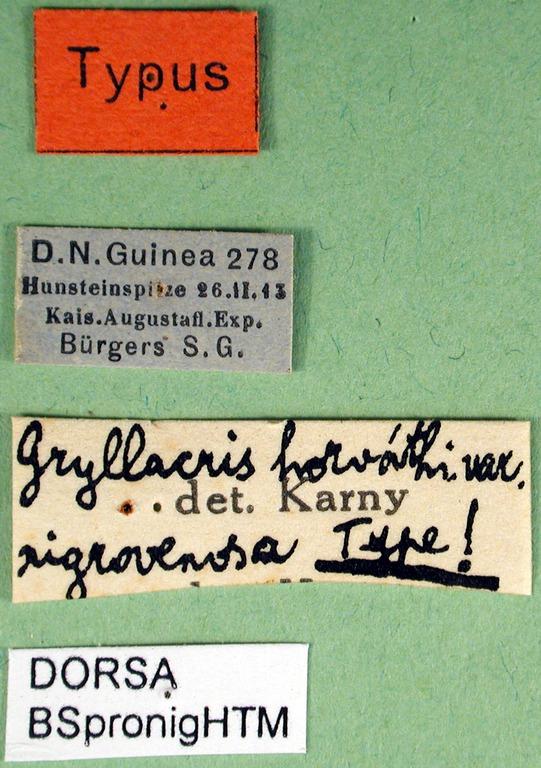 Typus
D.N.Guinea 278
Hunsteinspitze 26.II.13
Kais.Augustafl.Exp.
Bürgers S.G.
Gryllacris horváthi var.
det. Karny
nigrovenosa Type!
DORSA
BSpronigHTM